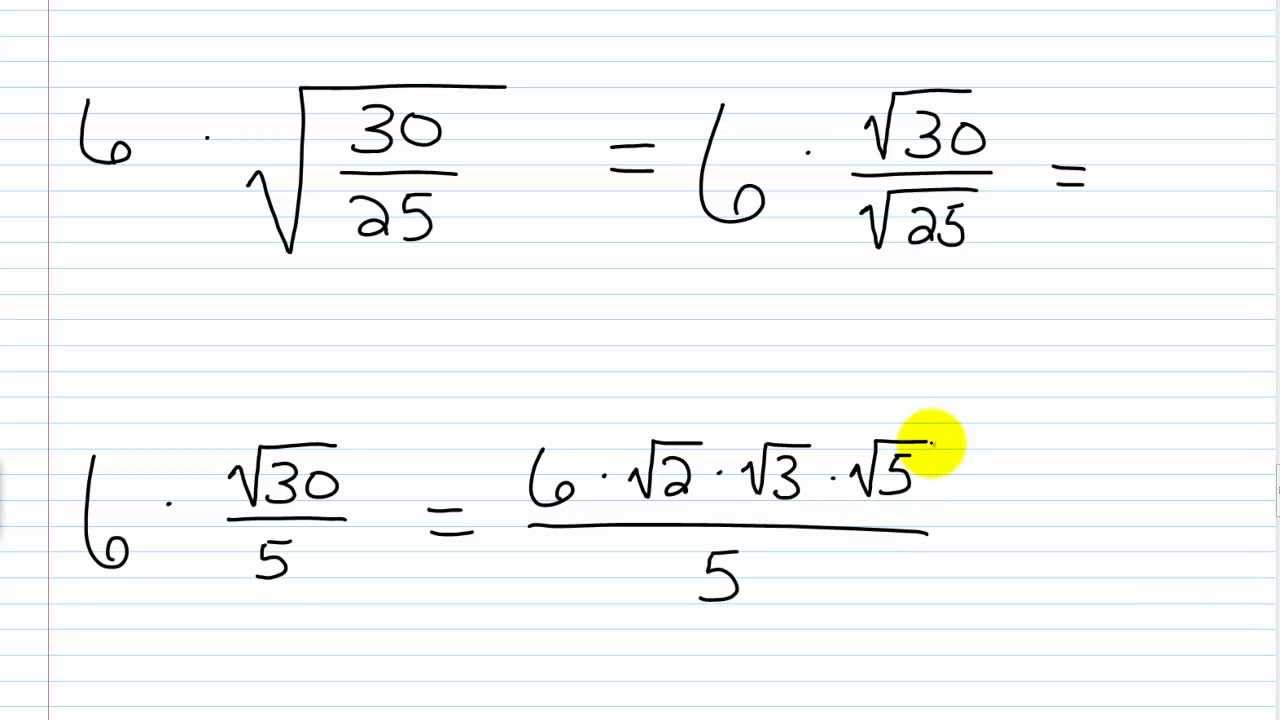 6 · √(30/25) = 6 · √30/√25 =
6 · √30/5 = (6 · √2 · √3 · √5)/5